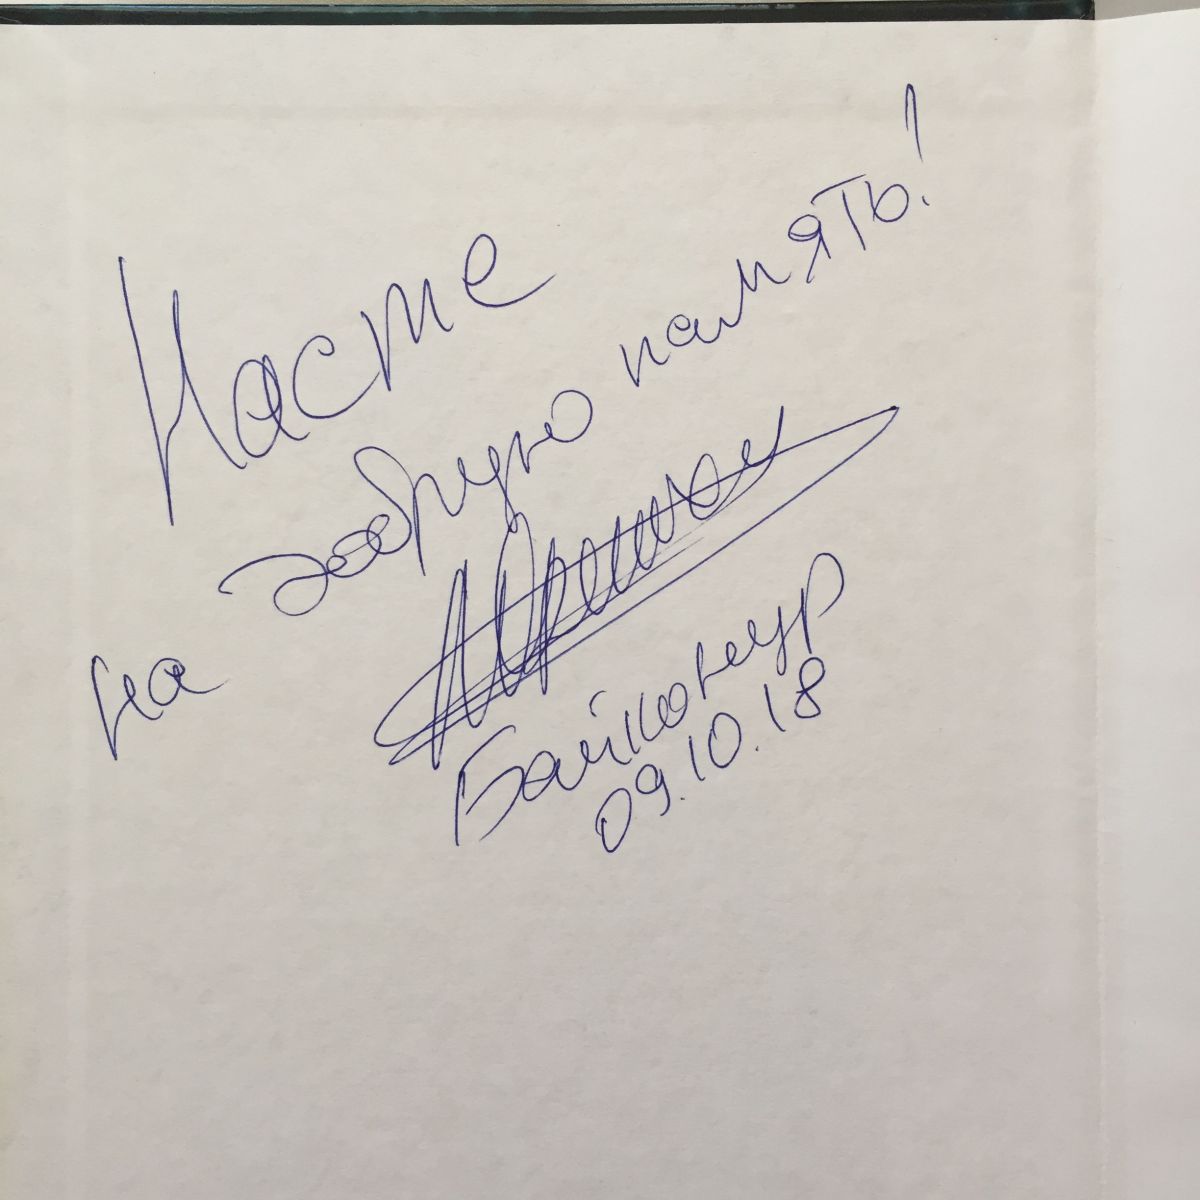 Насте
на добрую память!
Байконур
09.10.18